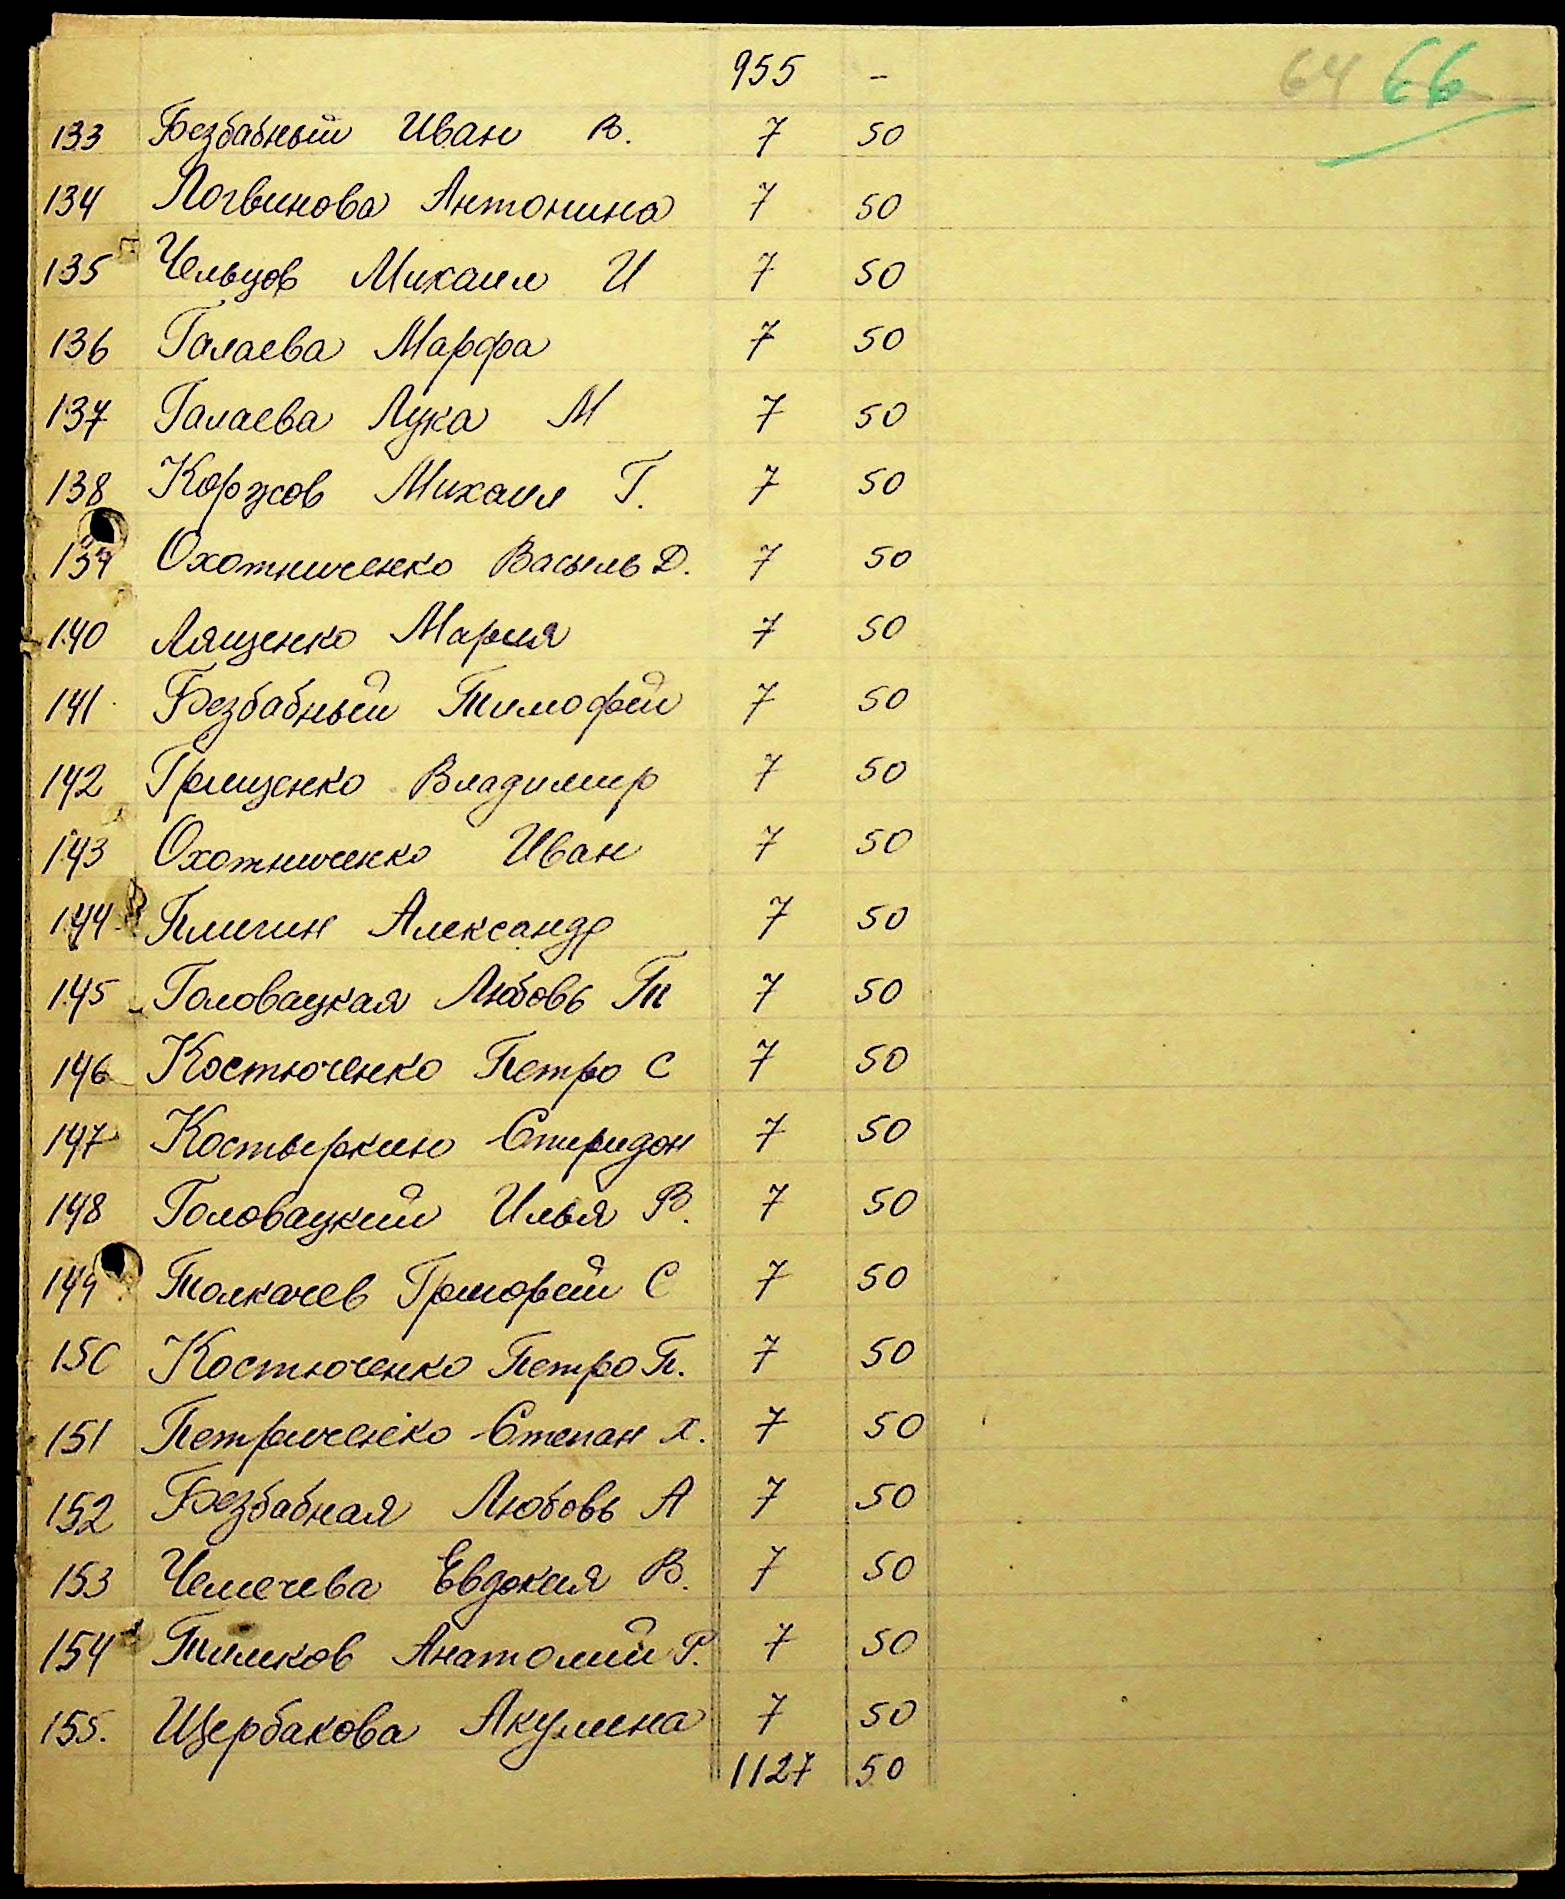 64 66
955 -
133 Безбабный Иван В. 7 50
134 Логвинова Антонина 7 50
135 Чельцов Михаил И 7 50
136 Галаева Марфа 7 50
137 Галаева Лука М 7 50
138 Коржов Михаил Г. 7 50
139 Охотниченко Василь Д. 7 50
140 Лященко Мария 7 50
141 Безбабный Тимофей 7 50
142 Грищенко Владимир 7 50
143 Охотниченко Иван 7 50
144 Плигин Александр 7 50
145 Головацкая Любовь Т 7 50
146 Костюченко Петро С 7 50
147 Костыркин Спиридон 7 50
148 Головацкий Илья В. 7 50
149 Толкачев Григорей С 7 50
150 Костюченко Петро П. 7 50
151 Петриченко Степан Х. 7 50
152 Безбабная Любовь А 7 50
153 Чемечева Евдокия В. 7 50
154 Тимков Анатолий Р. 7 50
155. Щербакова Акулина 7 50
1127 50